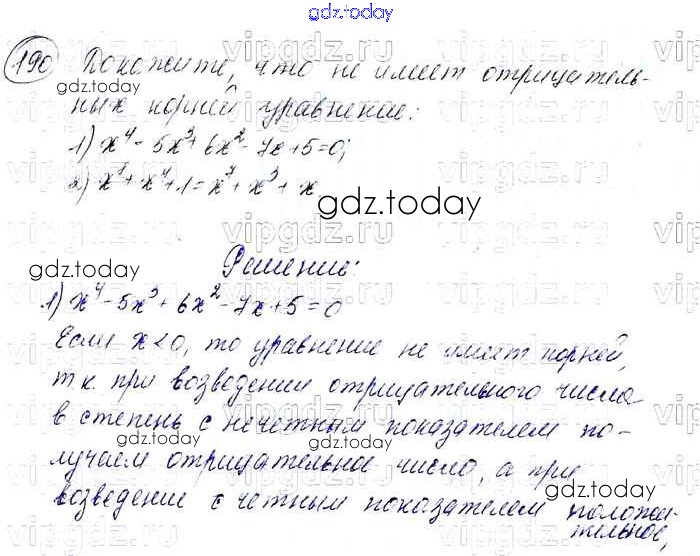 gdz.today
190 Докажите, что не имеет отрицатель-
ных корней уравнение:
1) x⁴ - 5x³ + 6x² - 7x + 5 = 0;
2) x⁸ + x⁴ + 1 = x⁷ + x³ + x
gdz.today
Решение:
gdz.today
1) x⁴ - 5x³ + 6x² - 7x + 5 = 0
Если x < 0, то уравнение не имеет корней,
т.к при возведении отрицательного числа
в степень с нечетным показателем по-
gdz.today
лучаем отрицательное число, а при
gdz.today
возведение с четным показателем положи-
тельное,
vipgdz.ru